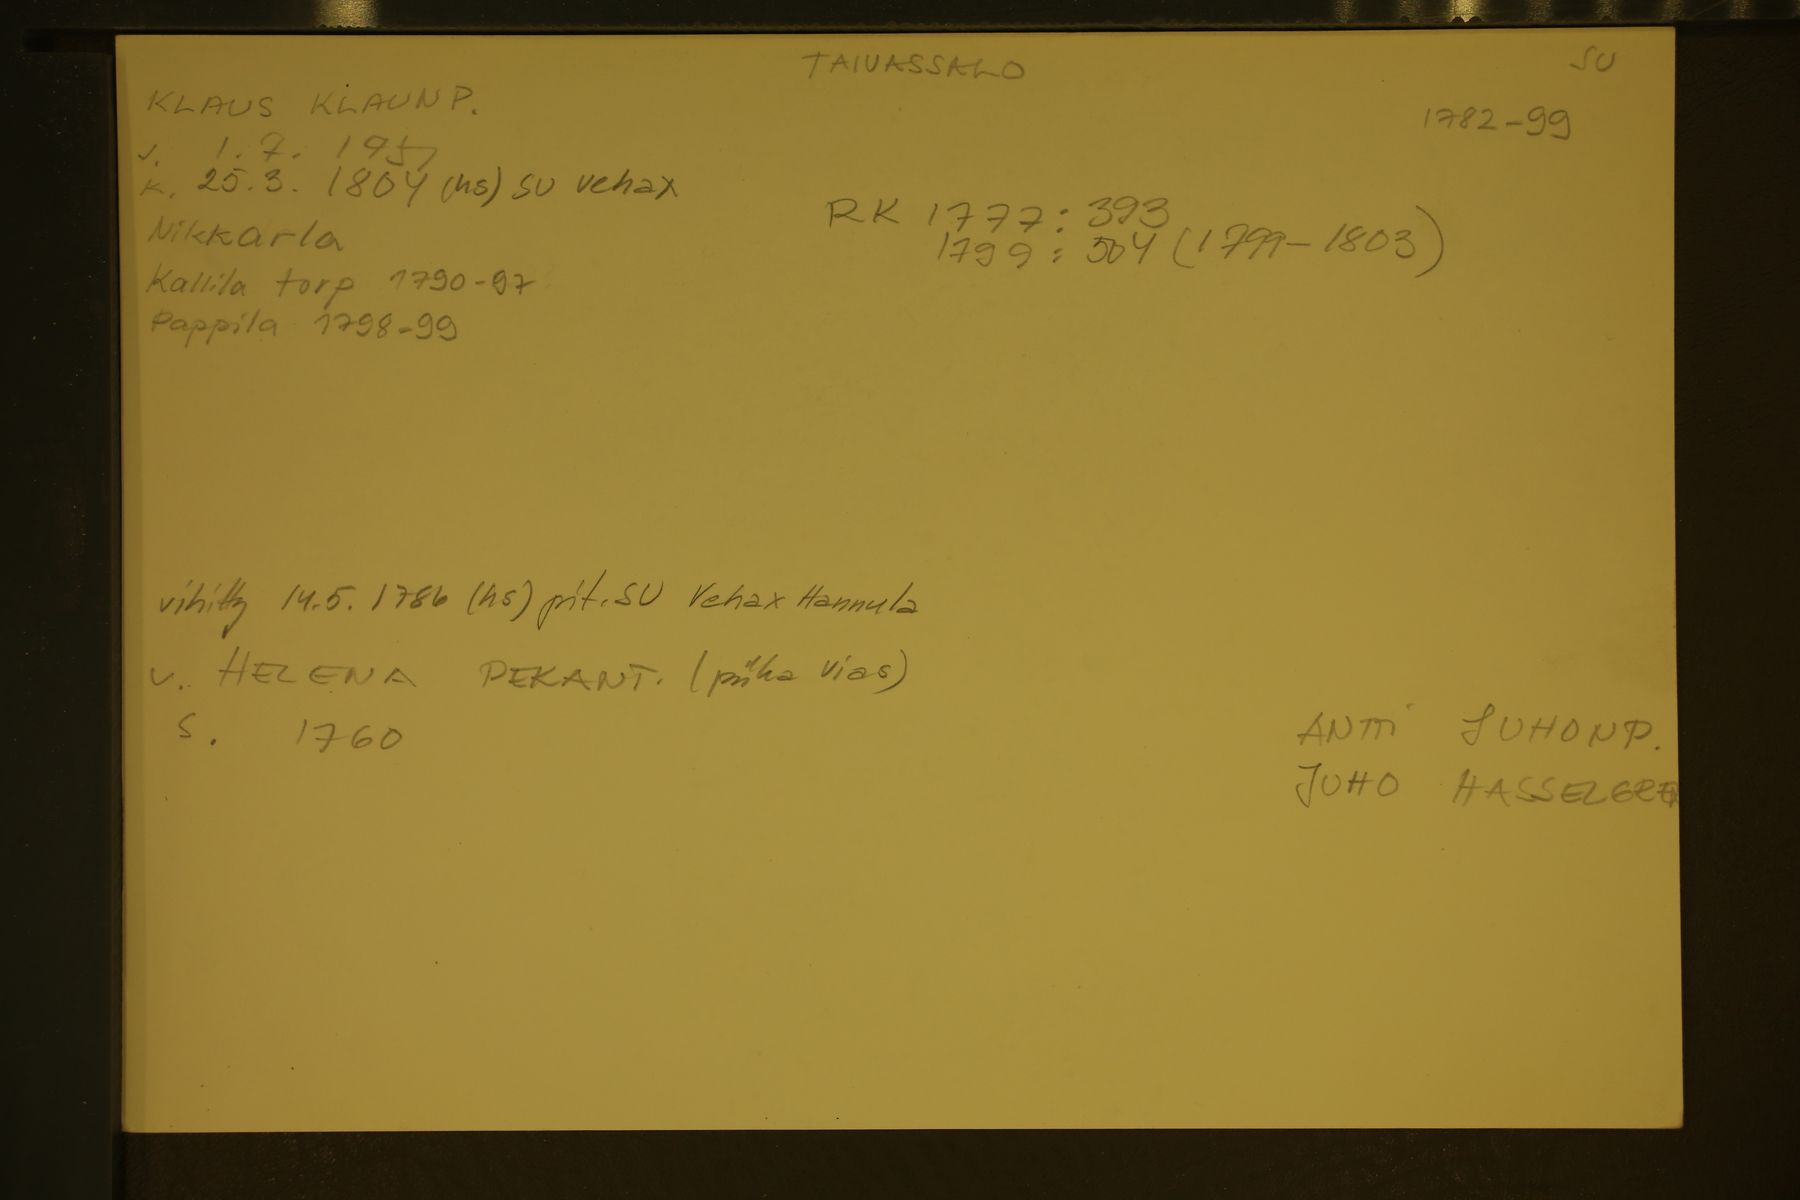 TAIVASSALO
SU
KLAUS KLAUNP.
1782-99
1.7. 1757
k. 25.3. 1804 (hs) SU Vehax
RK 1777: 393
Nikkarla
1799: 504 (1799-1803)
Kallila torp 1790-97
Pappila 1798-99
vihitty 14.5. 1786 (hs) pit. SU Vehax Hannula
v. HELENA PEKANT. (piika Vias)
S. 1760
ANTTI JUHONP.
JUHO HASSELGREN